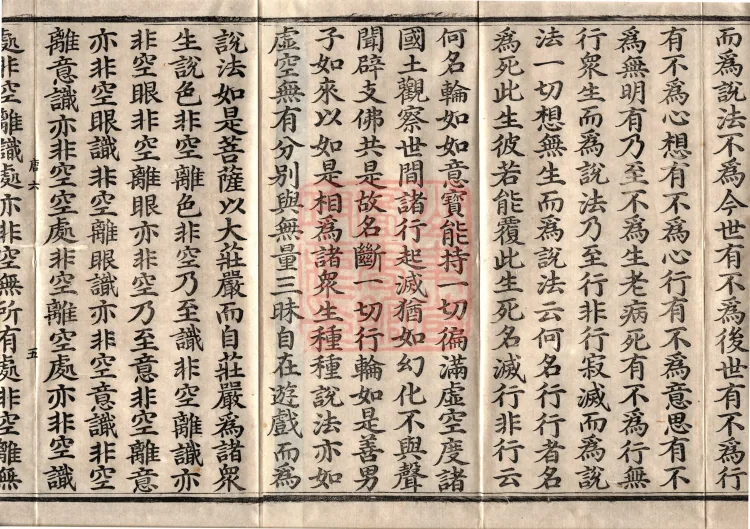 而爲說法不爲今世有不爲後世有不爲行
有不爲心想有不爲心行有不爲意思有不
爲無明有乃至不爲生老病死有不爲行無
行衆生而爲說法乃至行非行寂滅而爲說
法一切想無生而爲說法云何名行行者名
爲死此生彼若能覆此生死名滅行非行云
何名輪如如意寶能持一切徧滿虛空度諸
國土觀察世間諸行起滅猶如幻化不與聲
聞辟支佛共是故名斷一切行輪如是善男
子如來以如是相爲諸衆生種種說法亦如
虛空無有分别與無量三昧自在遊戲而爲
說法如是菩薩以大莊嚴而自莊嚴爲諸衆
生說色非空離色非空乃至識非空離識亦
非空眼非空離眼亦非空乃至意非空離意
亦非空眼識非空離眼識亦非空意識非空
離意識亦非空空處非空離空處亦非空識
唐六 五
處非空離識處亦非空無所有處非空離無